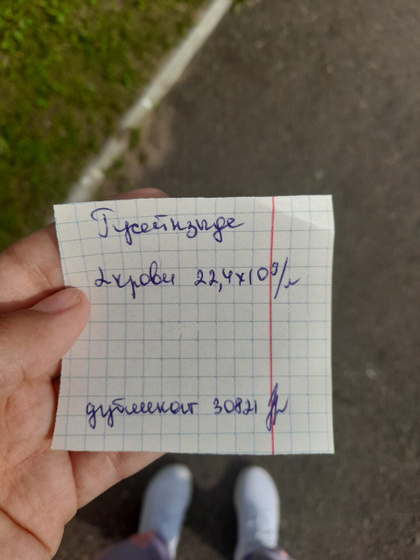 Гусейнзаде
L крови 22,4×10⁹/л
дубликат 30821